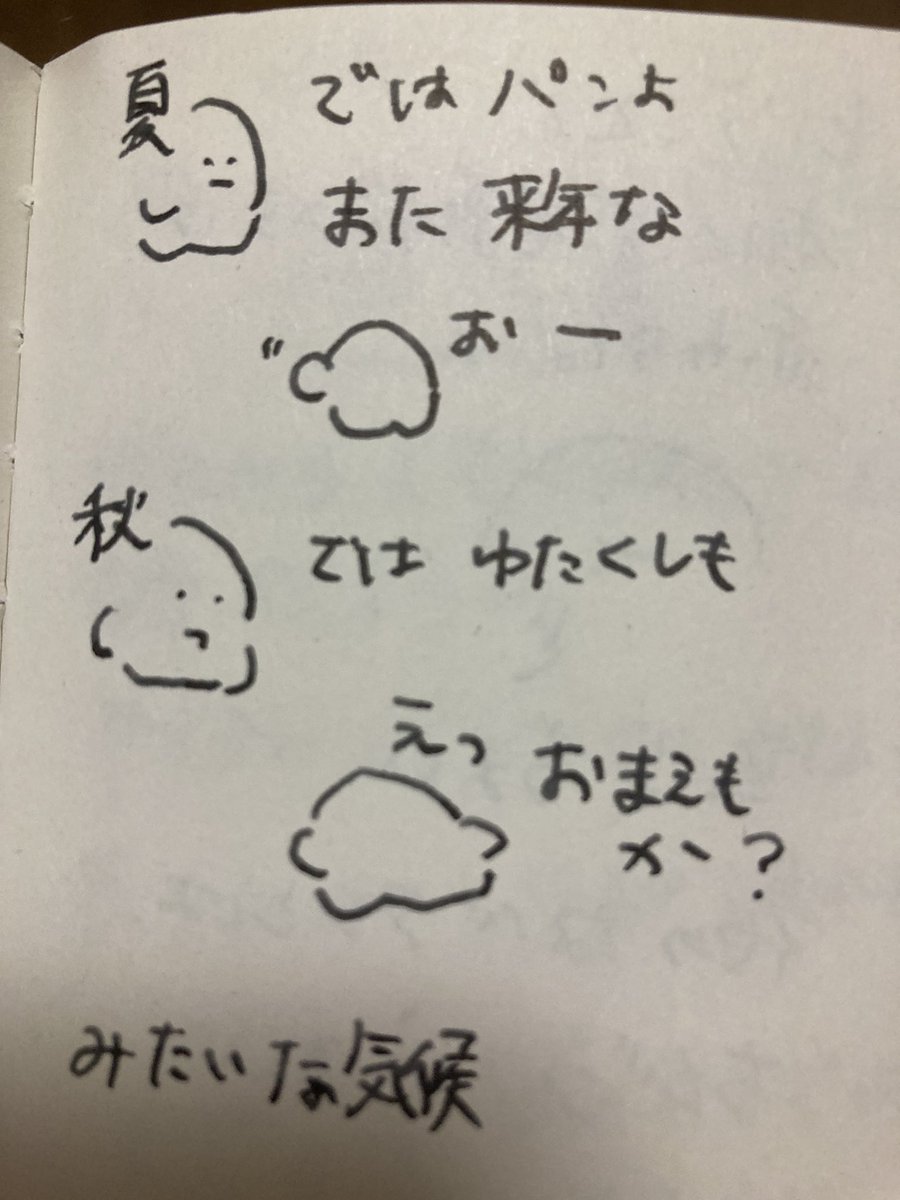 夏
では パンよ
また 来年な
おー
秋
では わたくしも
えっ
おまえも
か?
みたいな気候